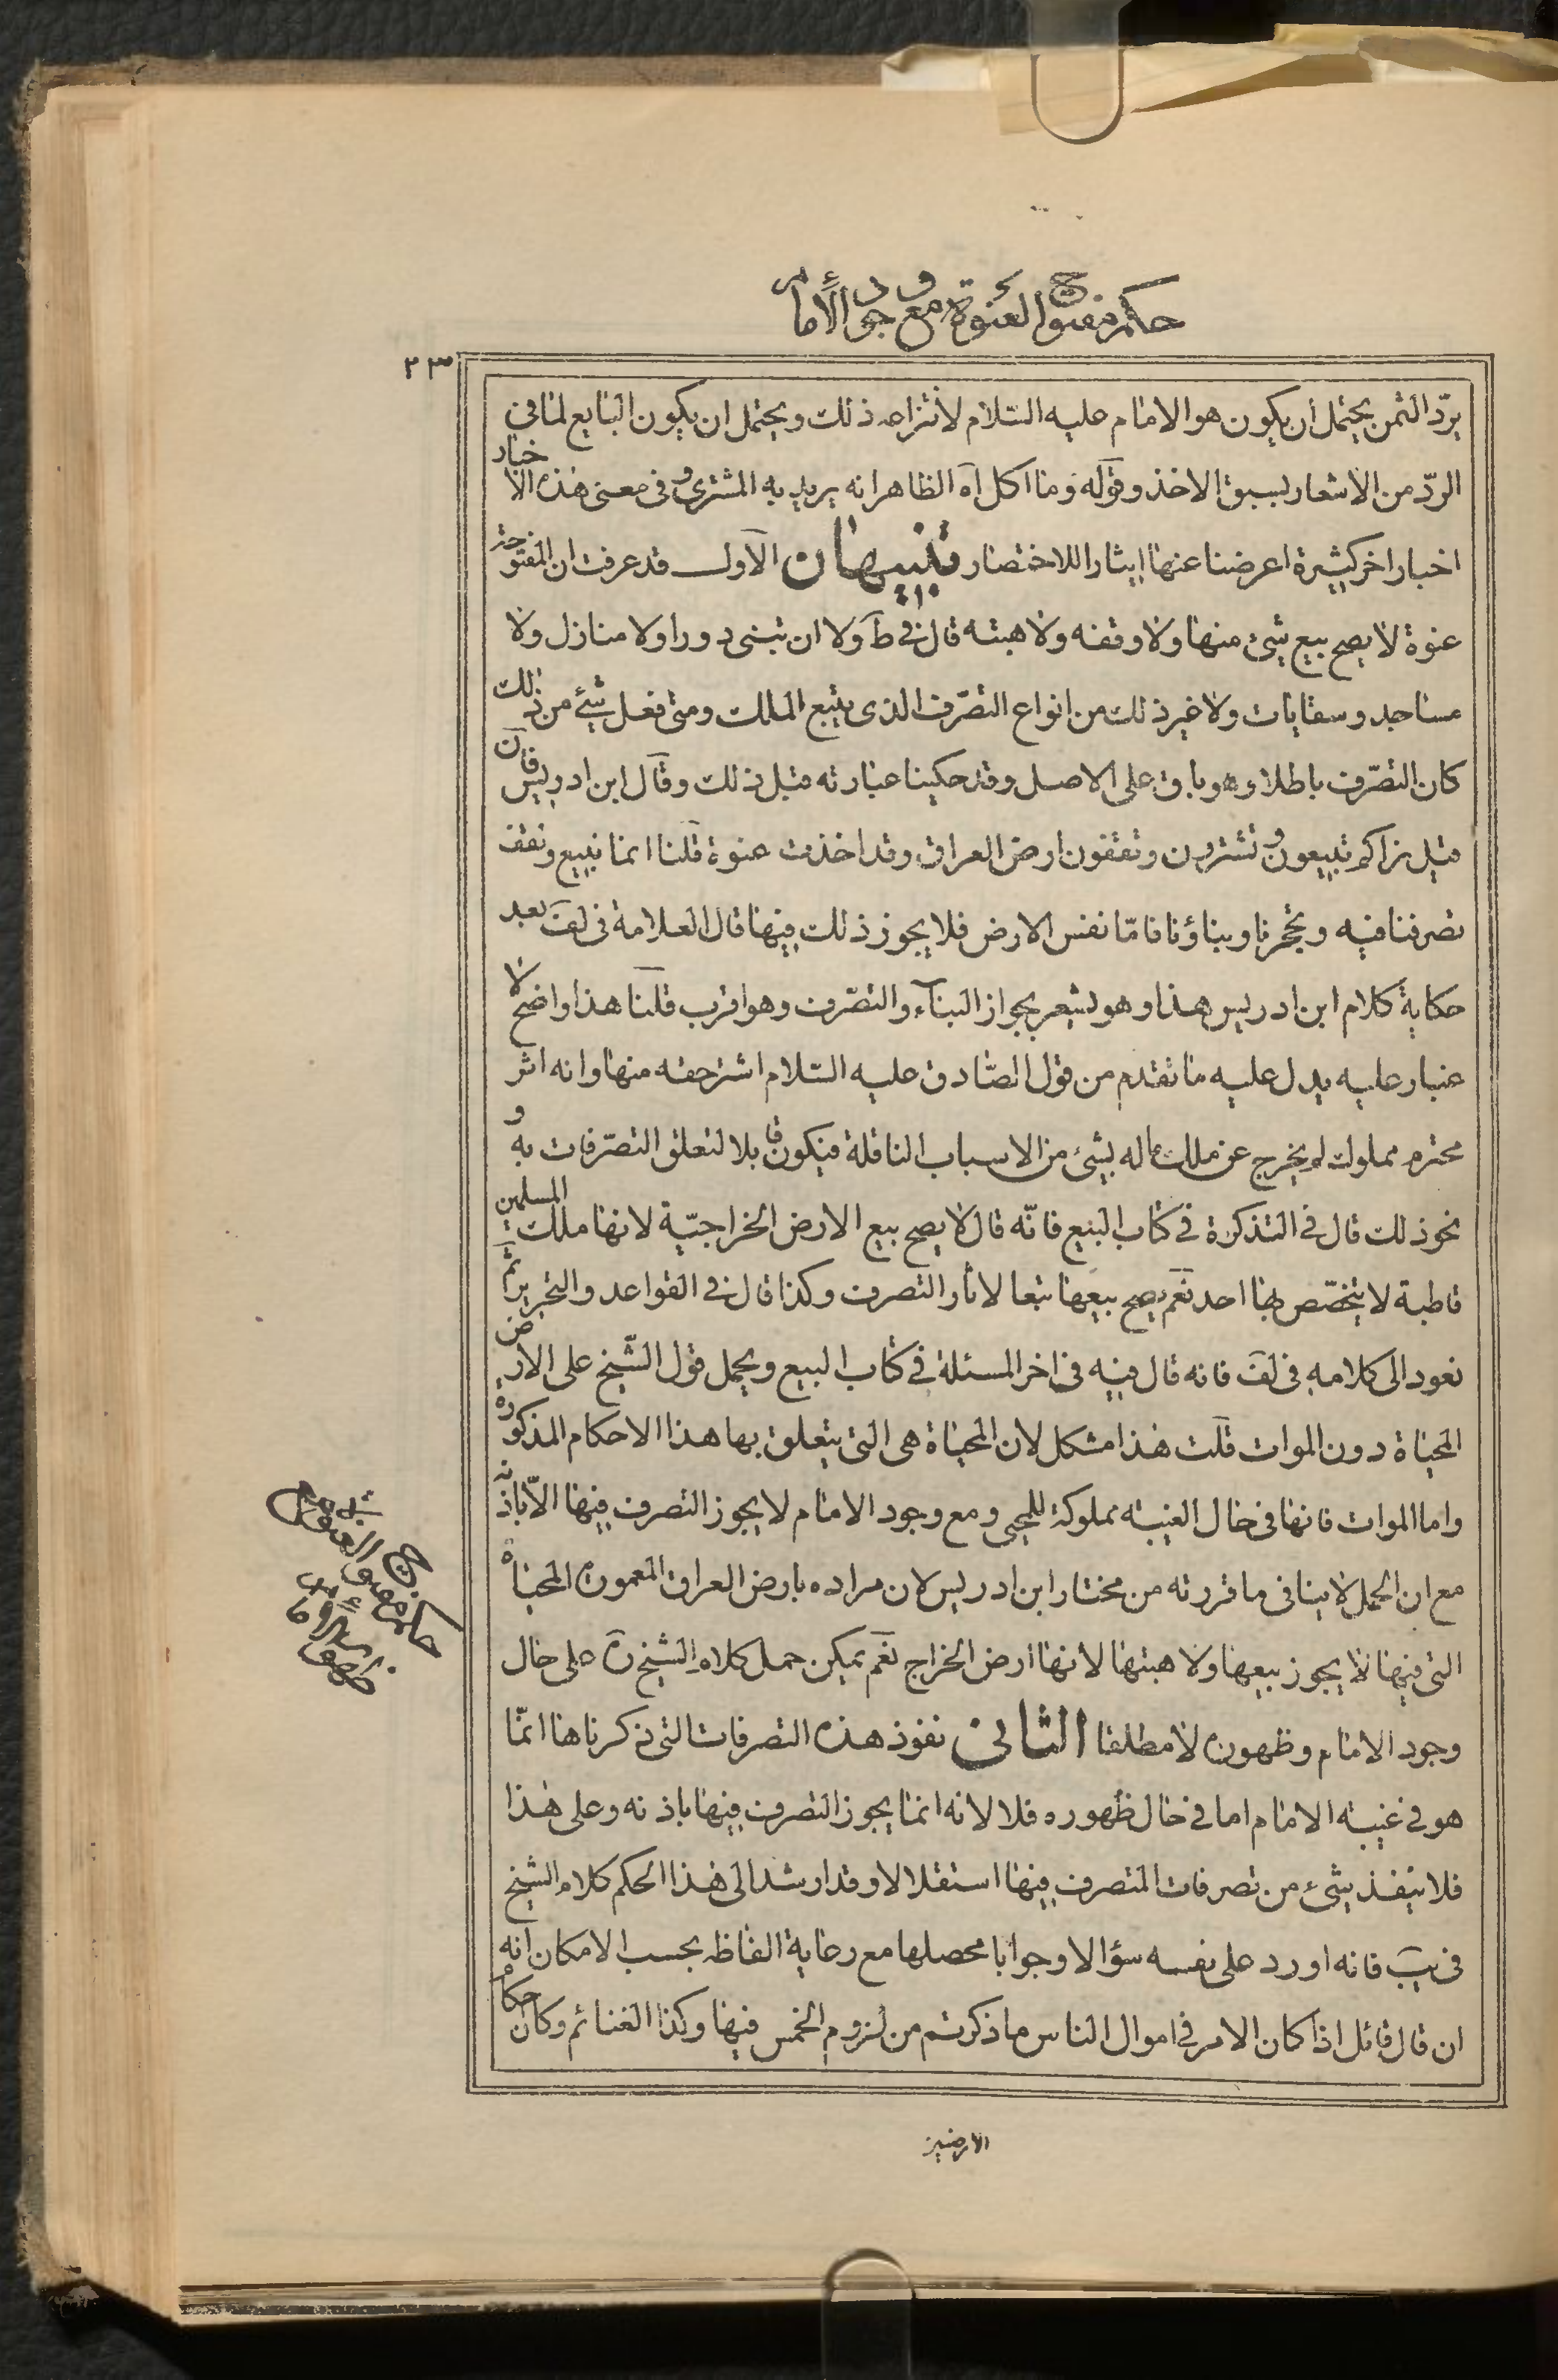 حكم مفتوح العنوة مع وجود الأمام
٢٣
يردّ الثمن يحتمل أن يكون هو الامام عليه السّلام لأنتزاعه ذلك ويحتمل ان يكون البايع لما فى
الردّ من الاشعار بسبق الاخذ وقوله وما اكل آه الظاهر انه يريد به المشترى وفى معنى هذه الاخبار
اخبار اخر كثيرة اعرضنا عنها ايثارا للاختصار تنبيهان الاول قد عرفت ان المفتوحة
عنوة لا يصح بيع شئ منها ولا وقفه ولا هبته قال فى ط ولا ان تبنى دورا ولا منازل ولا
مساجد وسقايات ولا غير ذلك من انواع التصرّف الذى يتبع الملك ومتى فعل شئ من ذلك
كان التصرّف باطلا وهو باق على الاصل وقد حكينا عبارته قبل ذلك وقال ابن ادريس فان
قيل نراكم تبيعون وتشترون وتقفون ارض العراق وقد اخذت عنوة قلنا انما نبيع ونقف
تصرفنا فيه وتحجرنا وبناؤنا فامّا نفس الارض فلا يجوز ذلك فيها قال العلامة فى لف بعد
حكاية كلام ابن ادريس هذا وهو يشعر بجواز البناء والتصّرف وهو اقرب قلنا هذا واضح لا
غبار عليه يدل عليه ما تقدم من قول الصّادق عليه السّلام اشتر حقه منها وانه اثر
محترم مملوك لم يخرج عن ملك ماله بشئ من الاسباب الناقلة فيكون قابلا لتعلق التصرّفات به و
نحو ذلك قال فى التذكرة فى كتاب البيع فانّه قال لا يصح بيع الارض الخراجيّة لانها ملك المسلمين
قاطبة لا يتخصّص بها احد نعم يصح بيعها تبعا لاثار التصرف وكذا قال فى القواعد والتحرير ثم
نعود الى كلامه فى لف فانه قال فيه فى اخر المسئلة فى كتاب البيع ويحمل قول الشّيخ على الارض
المحياة دون الموات قلت هذا مشكل لان المحياة هى التى يتعلق بها هذا الاحكام المذكورة
واما الموات فانها فى حال الغيبة مملوكة للمحيى ومع وجود الامام لا يجوز التصرف فيها الاّ باذنه
مع ان الحمل لا ينافى ما قررته من مختار ابن ادريس لان مراده بارض العراق المعمورة المحياة
التى فيها لا يجوز بيعها ولا هبتها لانها ارض الخراج نعم يمكن حمل كلام الشيخ ره على حال
وجود الامام وظهوره لا مطلقا الثانى نفوذ هذه التصرفات التى ذكرناها انمّا
هو فى غيبة الامام اما فى حال ظهوره فلا لانه انما يجوز التصرف فيها باذنه وعلى هذا
فلا ينفذ شئ من تصرفات المتصرف فيها استقلالا وقد ارشد الى هذا الحكم كلام الشيخ
فى يب فانه اورد على نفسه سؤالا وجوابا محصلها مع رعاية الفاظه بحسب الامكان انه
ان قال قائل اذا كان الامر فى اموال الناس ما ذكرتم من لزوم الخمس فيها وكذا الغنائم وكان احكام
الارضين
حكم مفتوح العنوة